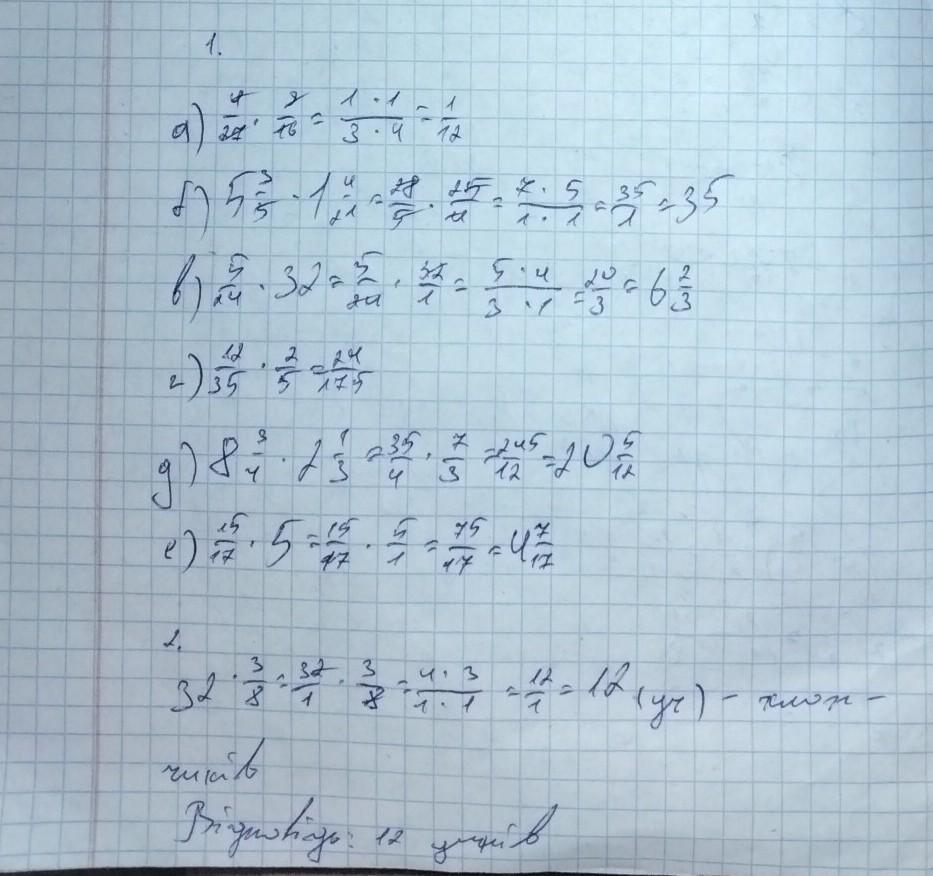 1.
а) 4/27 · 9/16 = (1 · 1)/(3 · 4) = 1/12
б) 5 3/5 · 1 4/21 = 28/5 · 25/4 = (7 · 5)/(1 · 1) = 35/1 = 35
в) 5/24 · 32 = 5/24 · 32/1 = (5 · 4)/(3 · 1) = 20/3 = 6 2/3
г) 12/35 · 2/5 = 24/175
д) 8 3/4 · 2 1/3 = 35/4 · 7/3 = 245/12 = 20 5/12
е) 15/17 · 5 = 15/17 · 5/1 = 75/17 = 4 7/17
2.
32 · 3/8 = 32/1 · 3/8 = (4 · 3)/(1 · 1) = 12/1 = 12 (уч) - хлоп-
чиків
Відповідь: 12 учнів